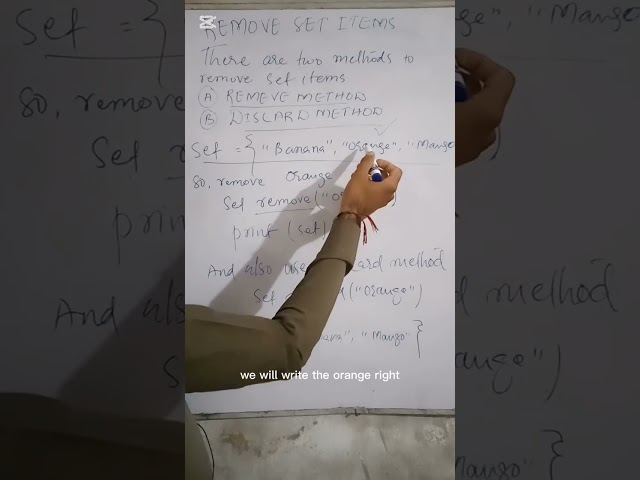 CapCut
REMOVE SET ITEMS
There are two methods to
remove set items
A REMEVE METHOD
B DISCARD METHOD
Set = { "Banana", "Orange", "Mango
So, remove Orange
Set remove ("O
print (set)
And also use ard method
Set ("Orange")
ana", "Mango" }
we will write the orange right